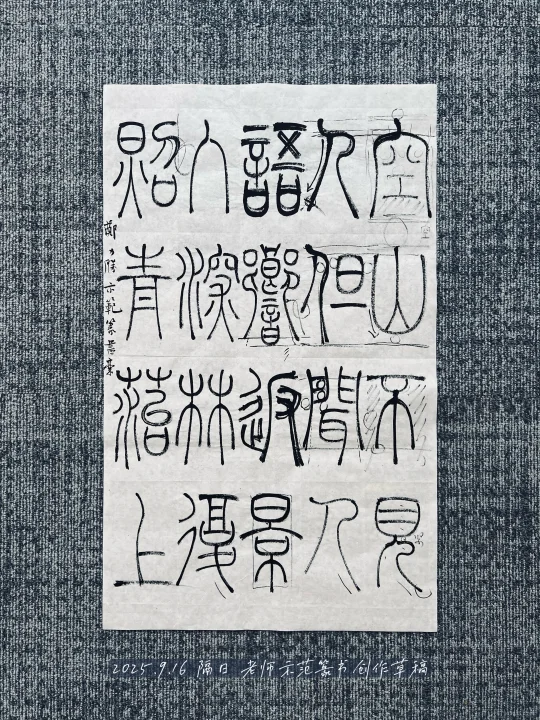 空山不見
人但聞人
語響返景
入深林復
照青菭上
示範篆書稾
2025.9.16 隔日 老师示范篆书创作草稿